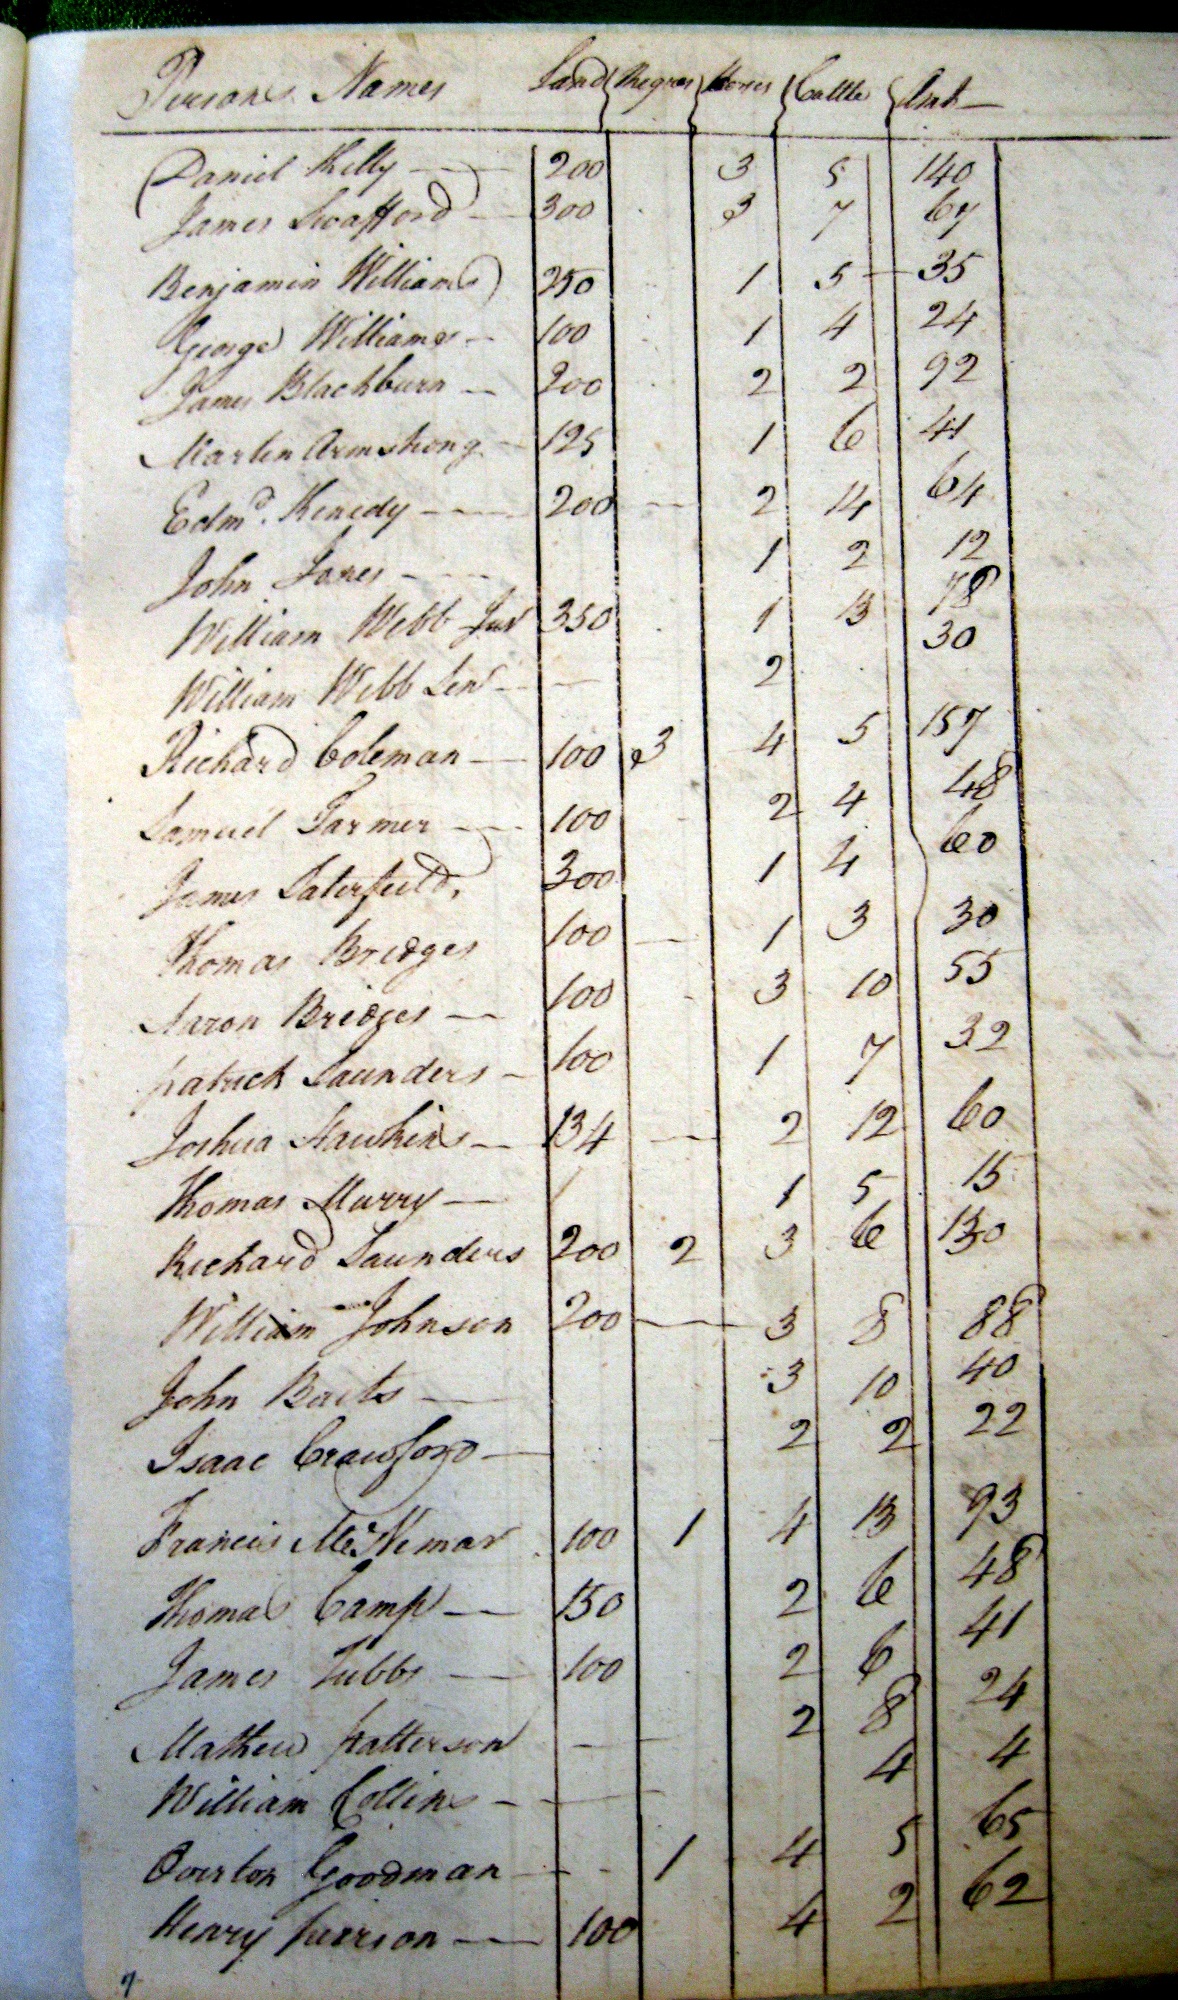 Persons Names Land Negroes Horses Cattle Amt
Daniel Kelly 200 3 5 140
James Swafford 300 3 7 67
Benjamin Williams 250 1 5 35
George Williams 100 1 4 24
James Blackburn 200 2 2 92
Martin Armstrong 125 1 6 41
Edmd. Kenedy 200 2 14 64
John Jones 1 2 12
William Webb Junr 350 1 13 78
William Webb Senr 2 30
Richard Coleman 100 3 4 5 157
Samuel Farmer 100 2 4 48
James Saterfield 300 1 4 60
Thomas Bridges 100 1 3 30
Aaron Bridges 100 3 10 55
patrick Saunders 100 1 7 32
Joshua Hawkins 134 2 12 60
Thomas Murry 1 5 15
Richard Saunders 200 2 3 6 130
William Johnson 200 3 8 88
John Baits 3 10 40
Isaac Crawford 2 2 22
Francis McNemar 100 1 4 13 93
Thomas Camp 150 2 6 48
James Tubbs 100 2 6 41
Mathew patterson 2 8 24
William Collins 4 4
Overton Goodman 1 4 5 65
Henry pierson 100 4 2 62
7